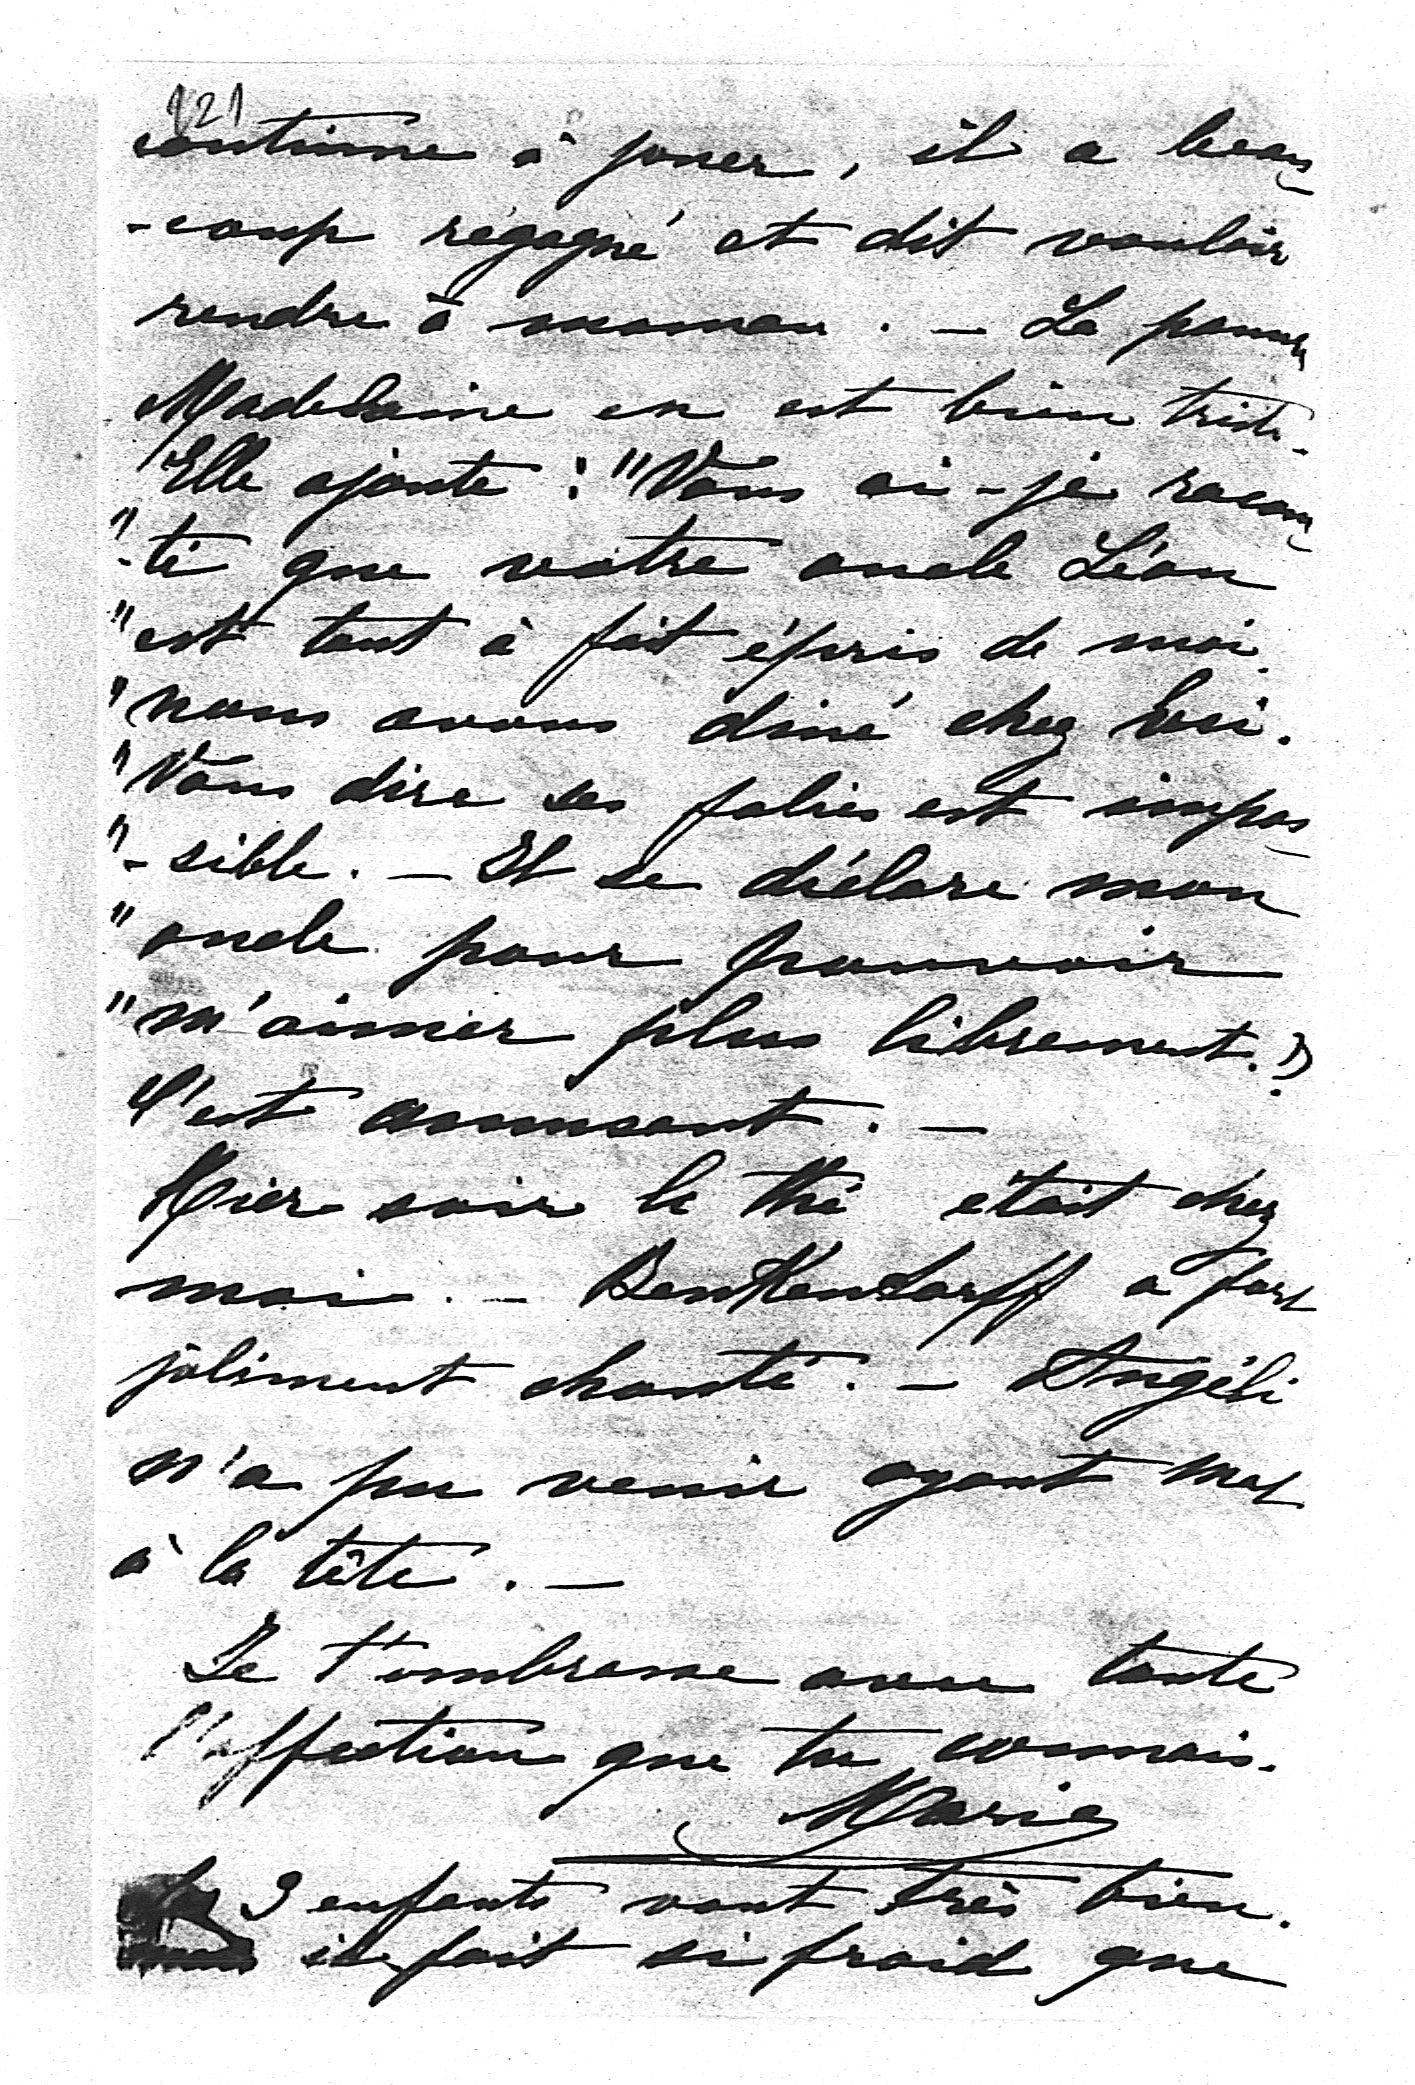 121
continue à jouer, il a beau
-coup régagné et dit vouloir
rendre à maman. — La pauvre
Madeleine en est bien triste.
Elle ajoute : "Vous ai-je racon
"-té que votre oncle Léon
"est tout à fait épris de moi.
"nous avons diné chez lui.
"Vous dire ses folies est impos
"-sible. — Il se déclare mon
"oncle pour pouvoir
"m'aimer plus librement."?
C'est amusant. —
Hier soir le thé était chez
moi. — Benkendorff a fort
joliment chanté. — Angéli
n'a pu venir ayant mal
à la tête. —
Je t'embrasse avec toute
l'affection que tu connais.
Marie
les 3 enfants vont très bien.
il fait si froid que